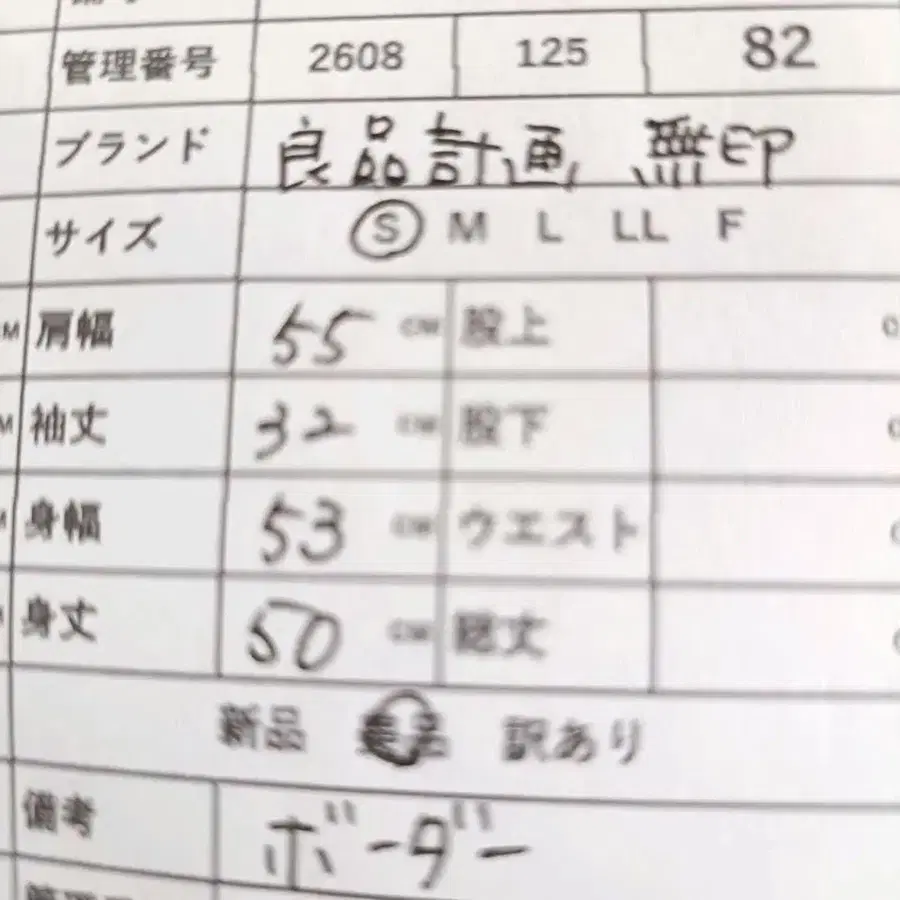 管理番号 2608 125 82
ブランド 良品計画 無印
サイズ S M L LL F
肩幅 55 CM 股上
袖丈 32 CM 股下
身幅 53 CM ウエスト
身丈 50 CM 総丈
新品 美品 訳あり
備考 ボーダー